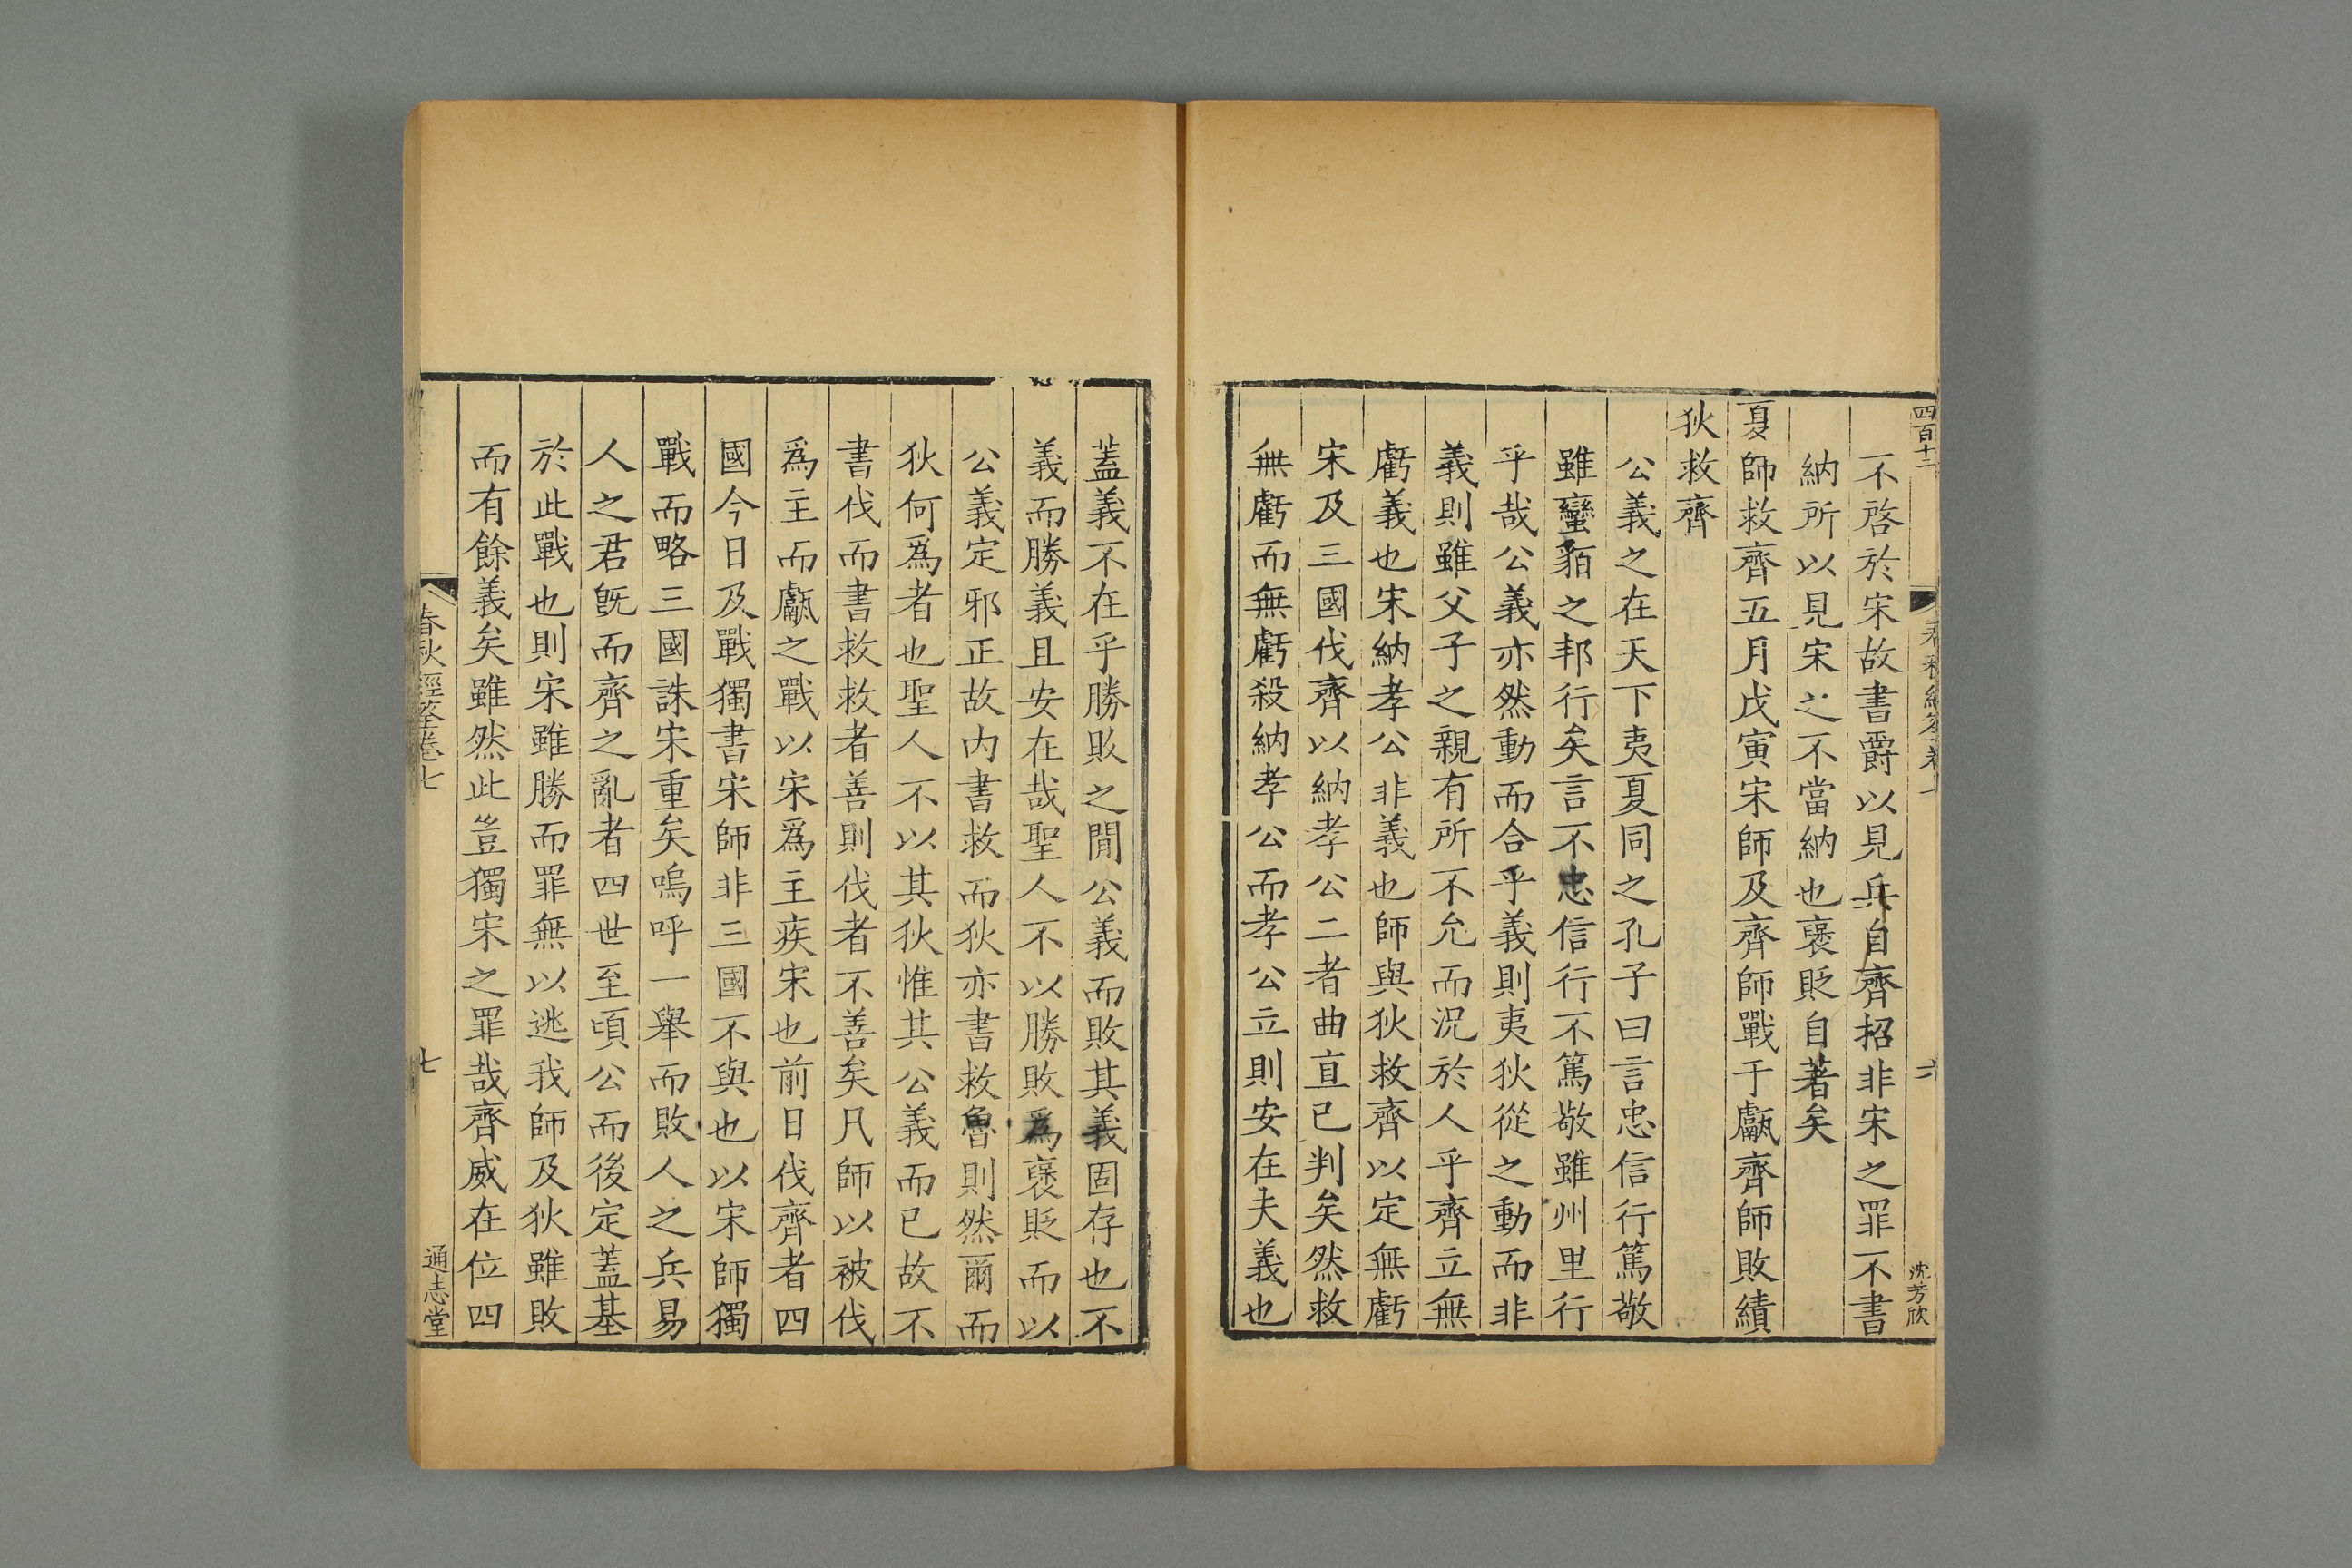 四百十二
沈芳欣
不啓於宋故書爵以見兵自齊招非宋之罪不書
納所以見宋之不當納也襃貶自著矣
夏師救齊五月戊寅宋師及齊師戰于甗齊師敗績
狄救齊
公義之在天下夷夏同之孔子曰言忠信行篤敬
雖蠻貊之邦行矣言不忠信行不篤敬雖州里行
乎哉公義亦然動而合乎義則夷狄從之動而非
義則雖父子之親有所不允而況於人乎齊立無
虧義也宋納孝公非義也師與狄救齊以定無虧
宋及三國伐齊以納孝公二者曲直已判矣然救
無虧而無虧殺納孝公而孝公立則安在夫義也
蓋義不在乎勝敗之閒公義而敗其義固存也不
義而勝義且安在哉聖人不以勝敗爲襃貶而以
公義定邪正故内書救而狄亦書救魯則然爾而
狄何爲者也聖人不以其狄惟其公義而已故不
書伐而書救救者善則伐者不善矣凡師以被伐
爲主而甗之戰以宋爲主疾宋也前日伐齊者四
國今日及戰獨書宋師非三國不與也以宋師獨
戰而略三國誅宋重矣嗚呼一舉而敗人之兵易
人之君旣而齊之亂者四世至頃公而後定蓋基
於此戰也則宋雖勝而罪無以逃我師及狄雖敗
而有餘義矣雖然此豈獨宋之罪哉齊威在位四
春秋經筌卷七
七
通志堂